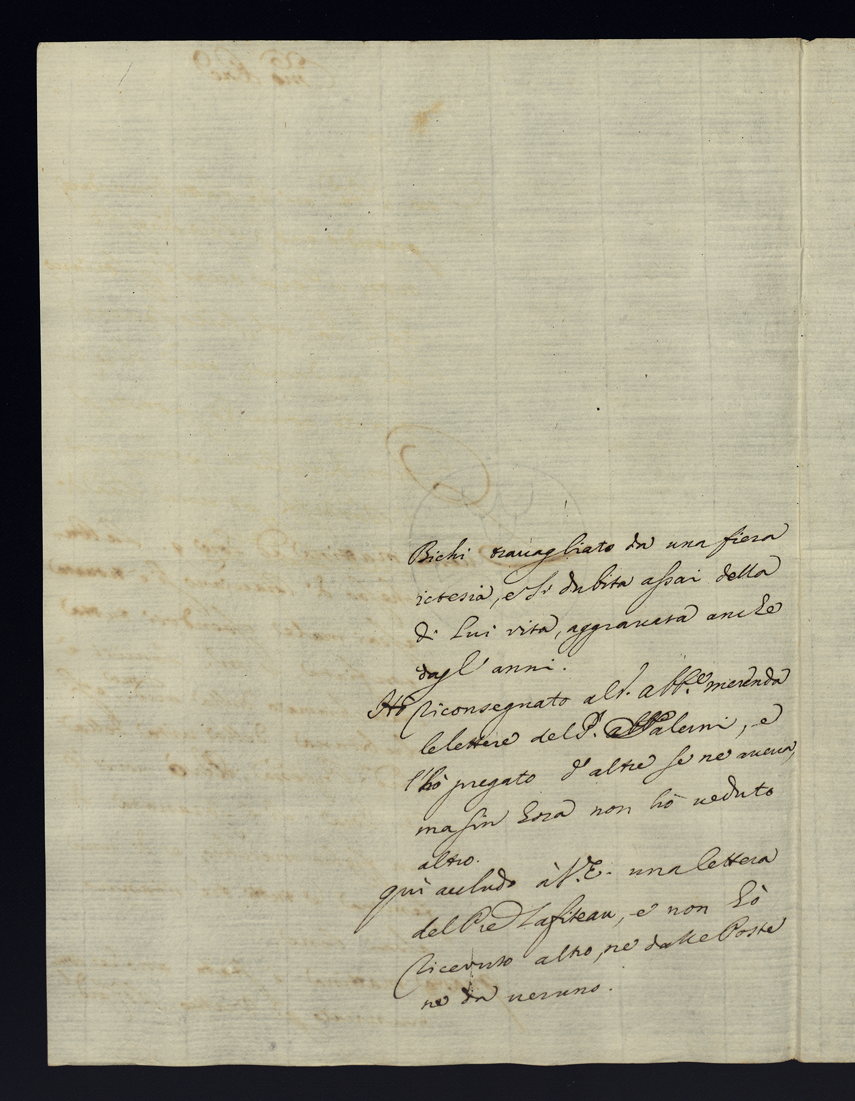 Bichi travagliato da una fiera
icteria, e si dubita assai della
di lui vita, aggravata anche
dagl' anni.
Hò riconsegnato al S. Abb.e merenda
le lettere del P. Palermi, e
l'hò pregato d'altre se ne aveva,
ma sin hora non hò veduto
altro.
qui accludo à V.E. una lettera
del Pre Lafiteau, e non hò
ricevuto altro, ne dalle Poste
ne da veruno.